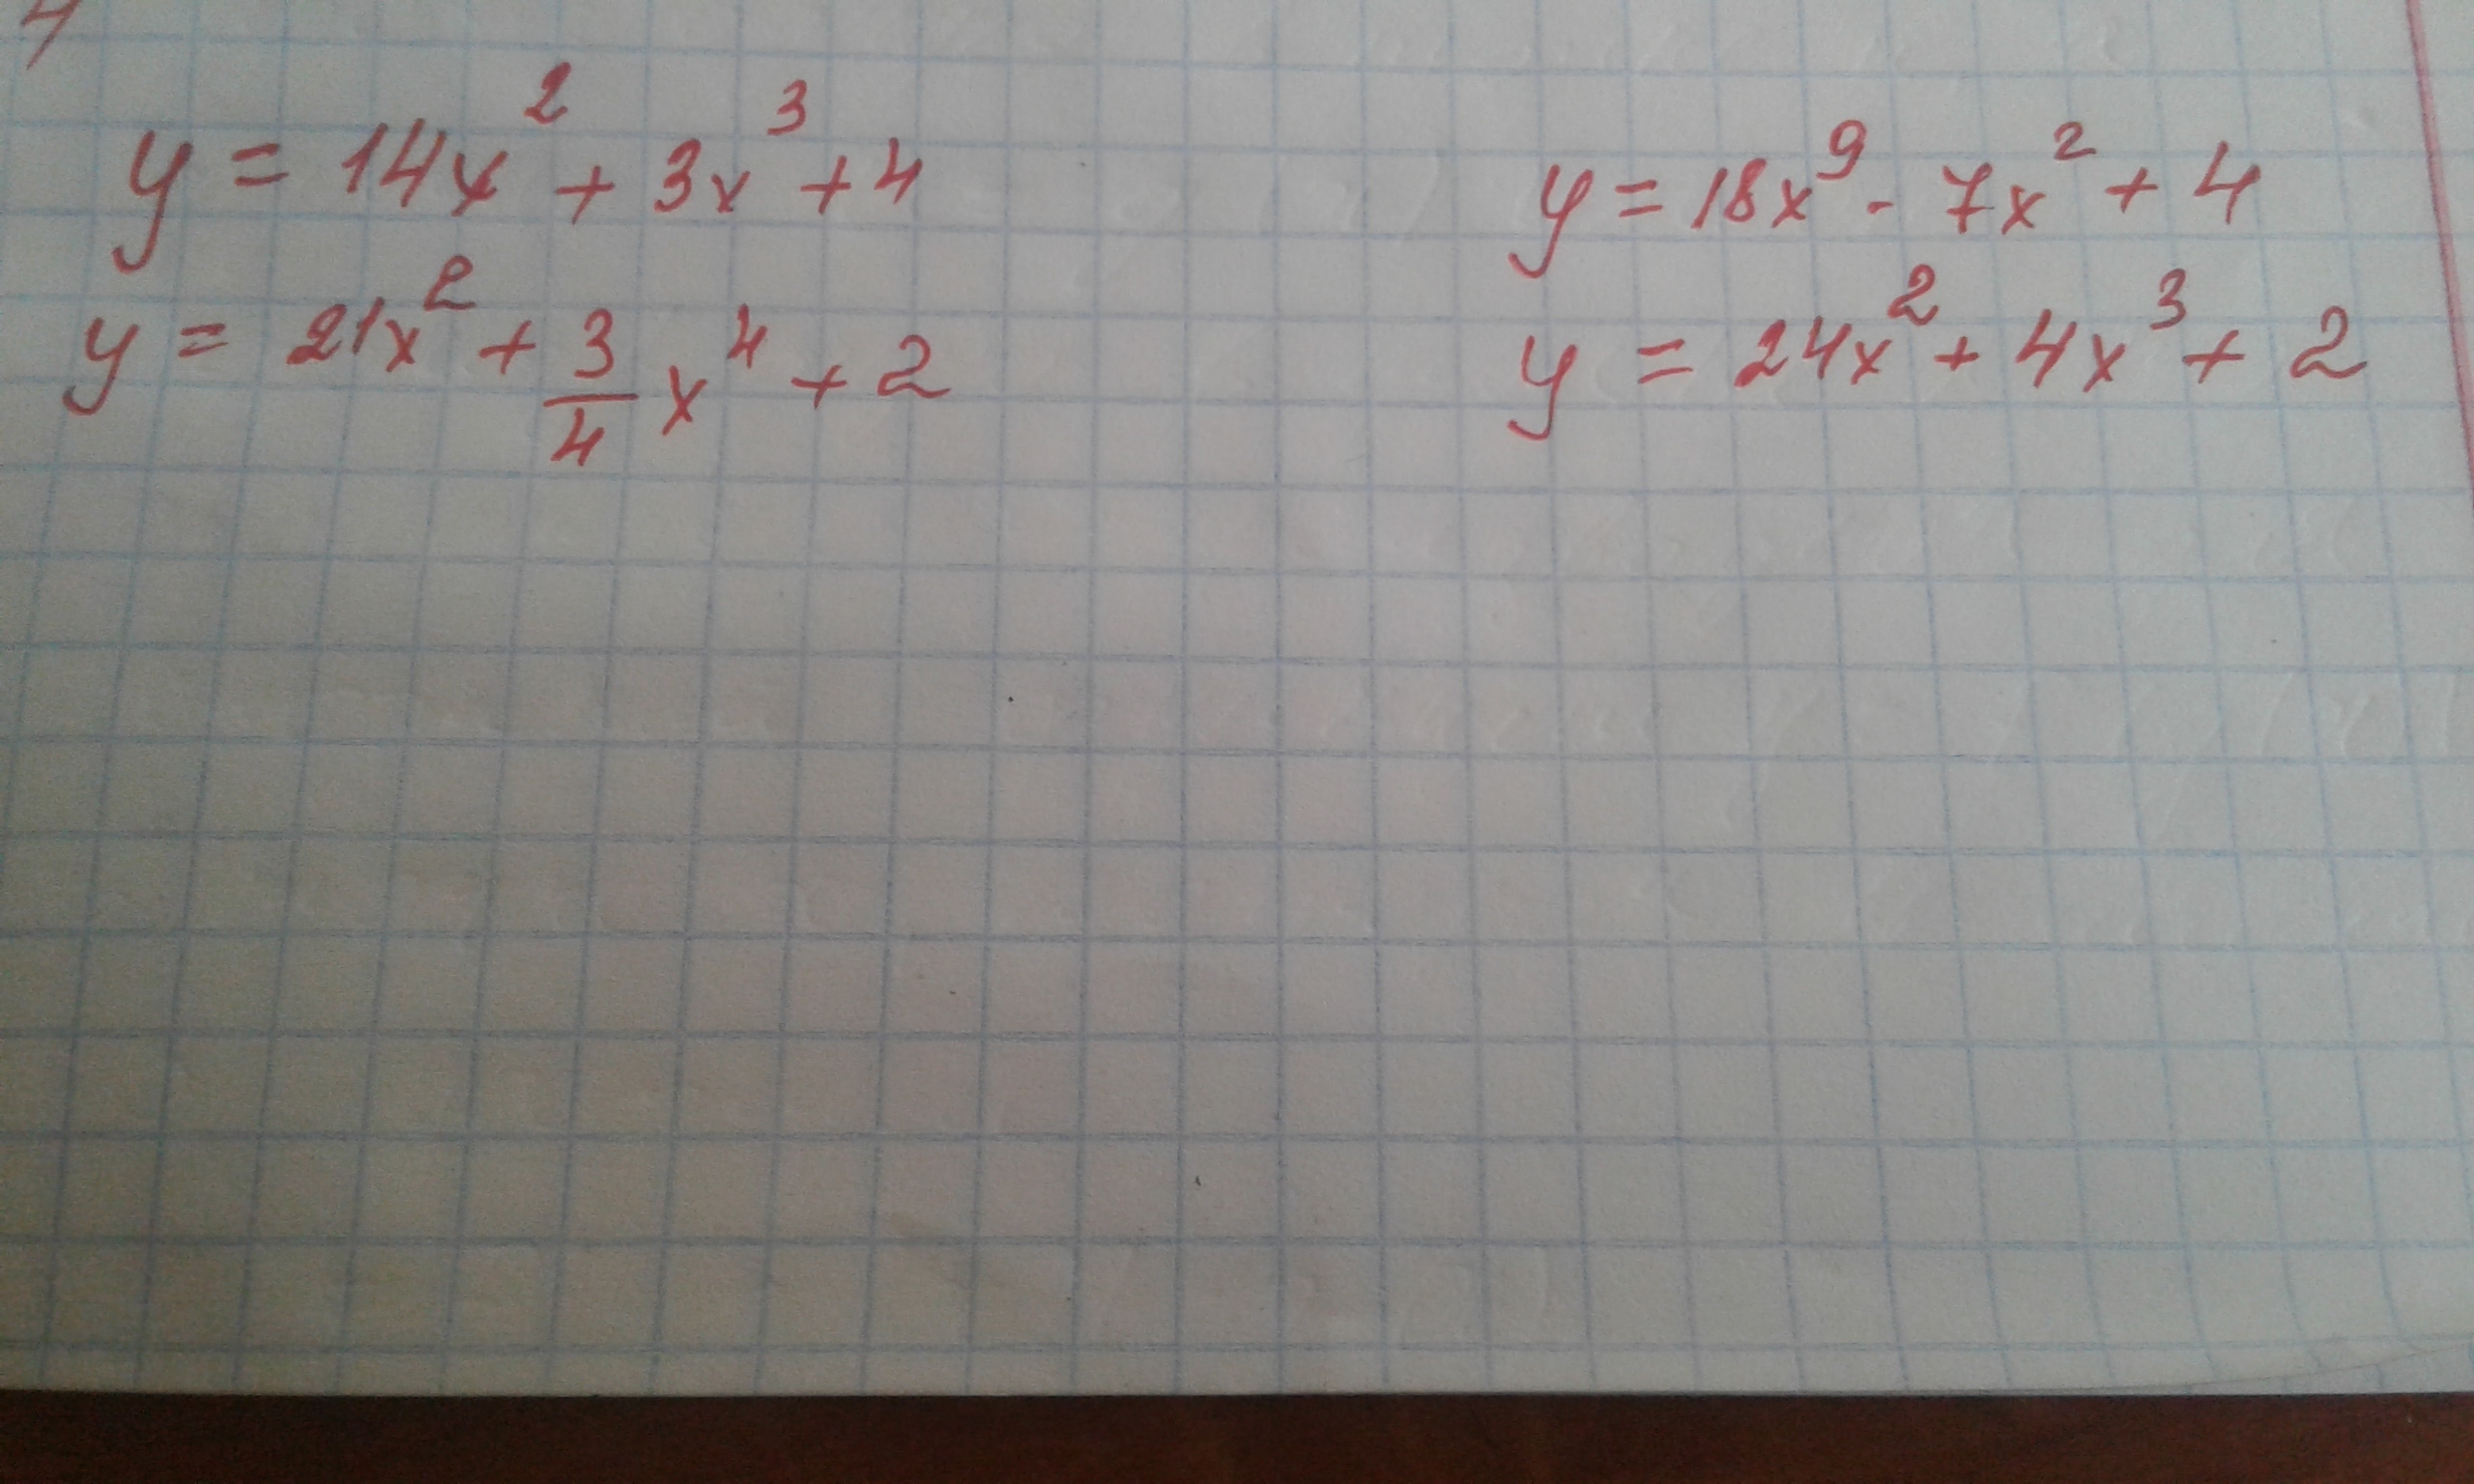 y = 14x² + 3x³ + 4
y = 21x² + 3/4 x⁴ + 2
y = 18x⁹ - 7x² + 4
y = 24x² + 4x³ + 2